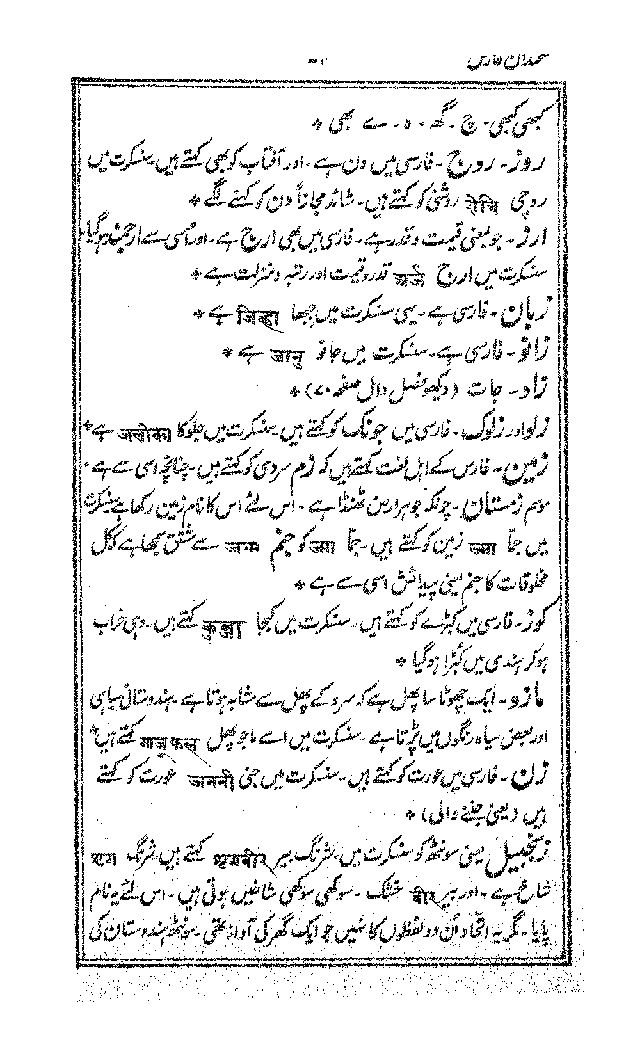 سخندان فارس
کبھی کبھی - ج - گھ - ہ - ے بھی *
روز - روج - فارسی میں دن ہے - اور آفتاب کو بھی کہتے ہیں سنسکرت میں
روچی रोचि روشنی کو کہتے ہیں - شائد مجازاً دن کو کہنے لگے *
ارز - جو بمعنی قیمت و قدر ہے - فارسی میں بھی ارج ہے - اور اسی سے ارجمند ہوگیا
سنسکرت میں ارج قدر و قیمت اور رتبہ و منزلت ہے *
زبان - فارسی ہے - یہی سنسکرت میں جبھا जिव्हा ہے *
زانو - فارسی ہے - سنسکرت میں جانو जानु ہے *
زاد - جات (دیکھو فصل دال صفحہ ۷۰) *
زلو اور زلوک - فارسی میں جونک کو کہتے ہیں - سنسکرت میں جلوکا जलोका ہے *
زمین - فارس کے اہل لغت کہتے ہیں کہ زم سردی کو کہتے ہیں - چنانچہ اسی سے ہے
موسم زمستان - چونکہ جوہر زمین ٹھنڈا ہے - اس لئے اس کا نام زمین رکھا ہے سنسکرت
میں جما زمین کو کہتے ہیں - جما کو جنم जन्म سے مشتق سمجھا ہے کہ کل
مخلوقات کا جنم یعنی پیدائش اسی سے ہے *
کوز - فارسی میں کبڑے کو کہتے ہیں - سنسکرت میں کبجا कुब्जा کہتے ہیں - وہی خراب
ہو کر ہندی میں کبڑا ہوگیا *
مازو - ایک چھوٹا سا پھل ہے کہ سرو کے پھل سے مشابہ ہوتا ہے - ہندوستانی سیاہی
اور بعض سیاہ رنگوں میں پڑتا ہے - سنسکرت میں اسے ماجوپھل माजुफल کہتے ہیں *
زن - فارسی میں عورت کو کہتے ہیں - سنسکرت میں جنی जननी عورت کو کہتے
ہیں (یعنی جننے والی) *
زنجبیل یعنی سونٹھ کو سنسکرت میں - شرنگ بیر کہتے ہیں شرنگ
شاخ ہے - اور بیر बीर خشک - سوکھی سوکھی شاخیں ہوتی ہیں - اس لئے یہ نام
پایا - مگر یہ اتحاد اُن دو لفظوں کا نہیں جو ایک گھر کی آواز تھی - سونٹھ ہندوستان کی